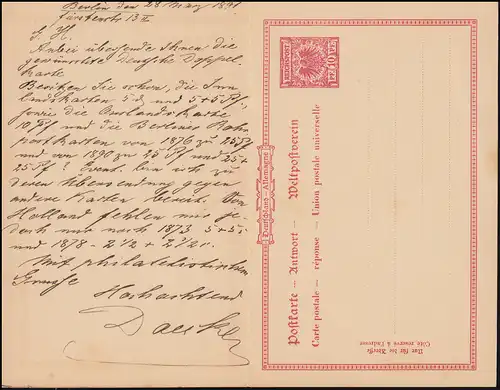 Berlin den 28 März 1891
Fürstenstr. 13 II
G. H.
Anbei übersende Ihnen die
gewünschte Deutsche Doppel-
Karte
Besitzen Sie schon, die Inn-
landskarten 5 d. und 5+5 Pf.
sowie die Auslandskarte
10 Pf und die Berliner Rohr
postkarten von 1876 zu 25 Pf
und von 1890 zu 25 Pf und 25+
25 Pf? Event. bin ich zu
deren Uebersendung gegen
andere Karten bereit. Von
Holland fehlen mir je-
doch nur noch 1873 5+5
und 1878 - 2½ + 2½ c.
Mit philatelistischem
Grusse
Hochachtend
REICHSPOST
10 PF 10
Deutschland – Allemagne
Postkarte – Antwort – Weltpostverein
Carte postale – réponse – Union postale universelle
Nur für die Adresse
Côté réservé à l'adresse